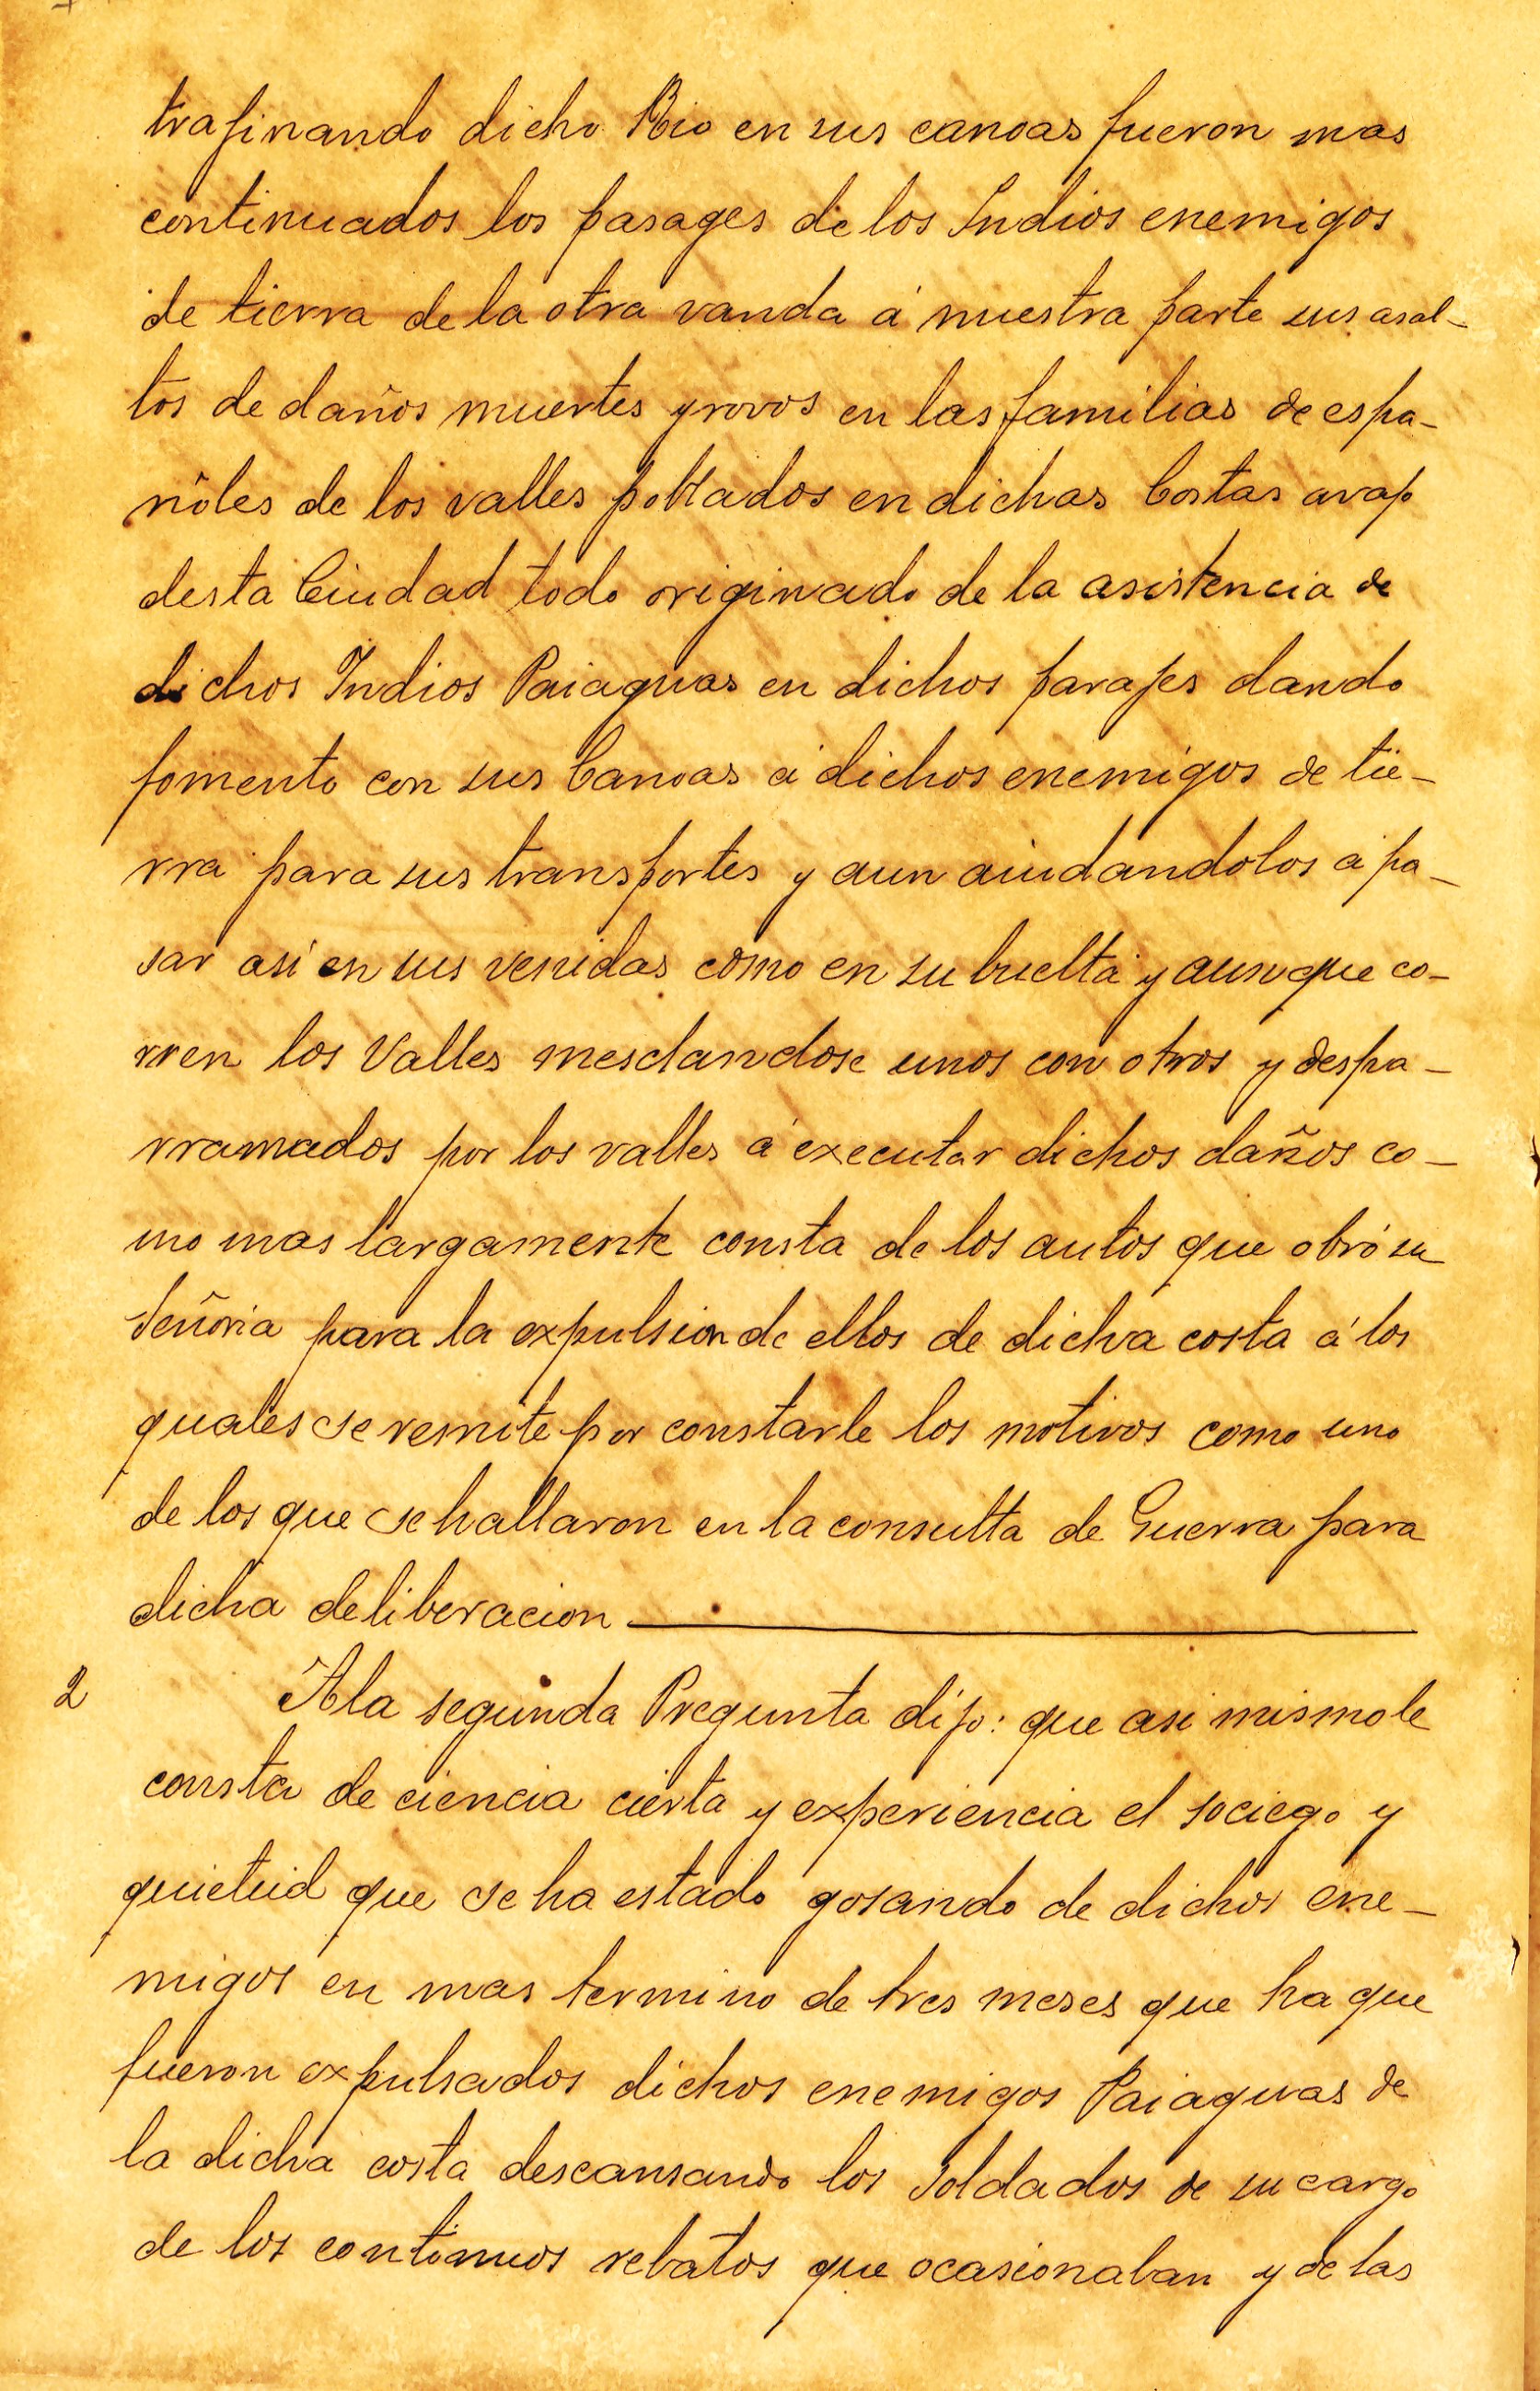 trafinando dicho Rio en sus canoas fueron mas
continuados los pasages de los Indios enemigos
de tierra de la otra vanda á nuestra parte sus asal-
tos de daños muertes y rovos en las familias de espa-
ñoles de los valles poblados en dichas Costas avajo
desta Ciudad todo originado de la asistencia de
dichos Indios Paiaguas en dichos parajes dando
fomento con sus Canoas á dichos enemigos de tie-
rra para sus transportes y aun aiudandolos á pa-
sar asi en sus venidas como en su buelta y aunque co-
rren los Valles mesclandose unos con otros y despa-
rramados por los valles á executar dichos daños co-
mo mas largamente consta de los autos que obró su
Señoria para la expulsion de ellos de dicha costa á los
quales se remite por constarle los motivos como uno
de los que se hallaron en la consulta de Guerra para
dicha deliberacion
2 A la segunda Pregunta dijo: que asi mismo le
consta de ciencia cierta y experiencia el sociego y
quietud que se ha estado gosando de dichos ene-
migos en mas termino de tres meses que ha que
fueron expulsados dichos enemigos Paiaguas de
la dicha costa descansando los Soldados de su cargo
de los continuos rebatos que ocasionaban y de las